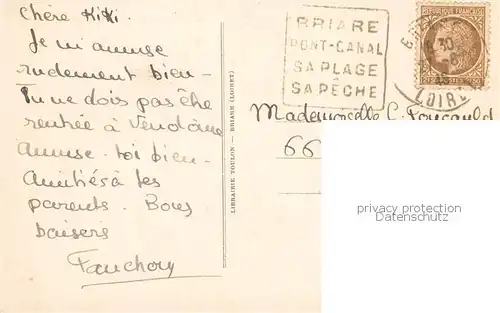 chère Kiki.
Je m'amuse
rudement bien -
Tu ne dois pas être
rentrée à Vendôme
amuse-toi bien -
Amitiés à tes
parents. Bons
baisers
Fanchon
LIBRAIRIE TOULON — BRIARE (LOIRET)
BRIARE
PONT-CANAL
SA PLAGE
SA PÊCHE
RÉPUBLIQUE FRANÇAISE
30
LOIRET
Mademoselle C. Foucauld
66
privacy protection
Datenschutz